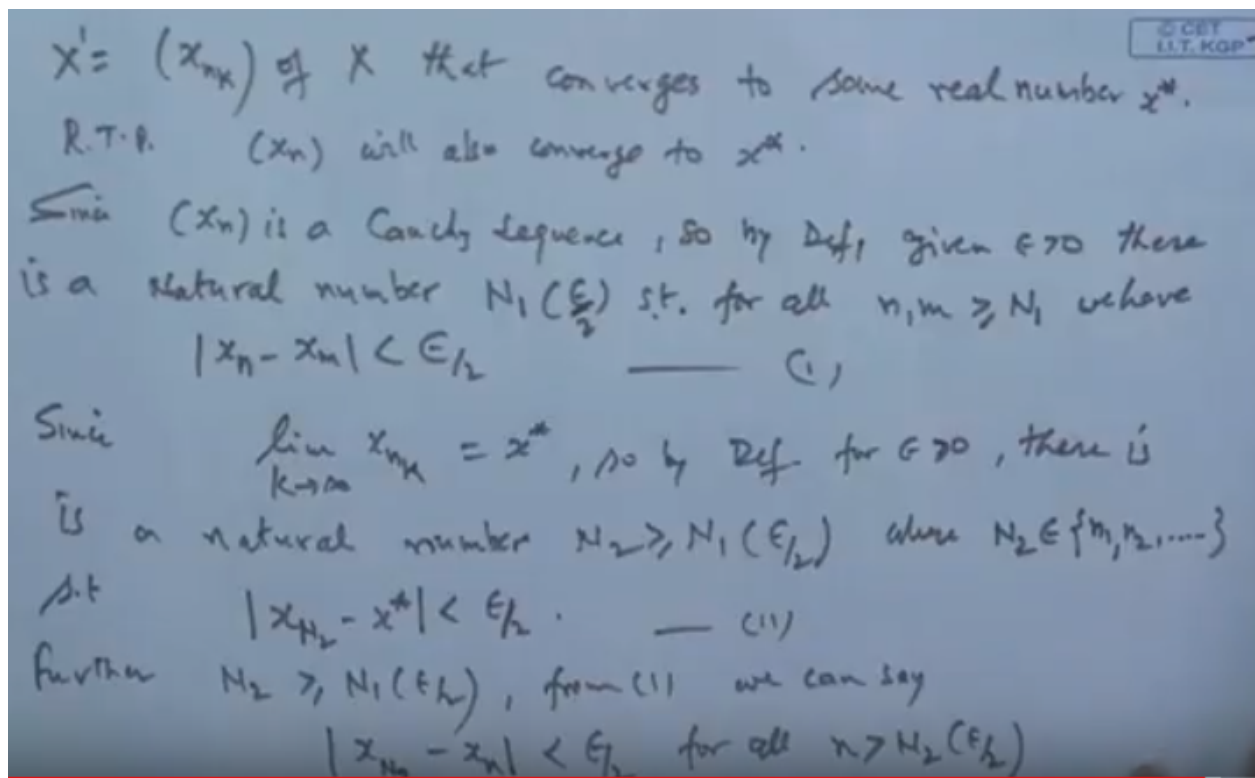 © CET
I.I.T. KGP
X' = (x_{n_k}) of X that converges to some real number x*.
R.T.P. (x_n) will also converge to x*.
Since (x_n) is a Cauchy sequence, so by Def, given ε>0 there
is a Natural number N_1(ε/2) s.t. for all n,m ≥ N_1 we have
|x_n - x_m| < ε/2 —— (1)
Since lim_{k→∞} x_{n_k} = x*, so by Def. for ε>0, there is
is a natural number N_2 ≥ N_1(ε/2) where N_2 ∈ {n_1, n_2, .....}
s.t |x_{N_2} - x*| < ε/2. — (11)
Further N_2 ≥ N_1(ε/2), from (1) we can say
|x_{N_2} - x_n| < ε/2 for all n > N_2(ε/2)